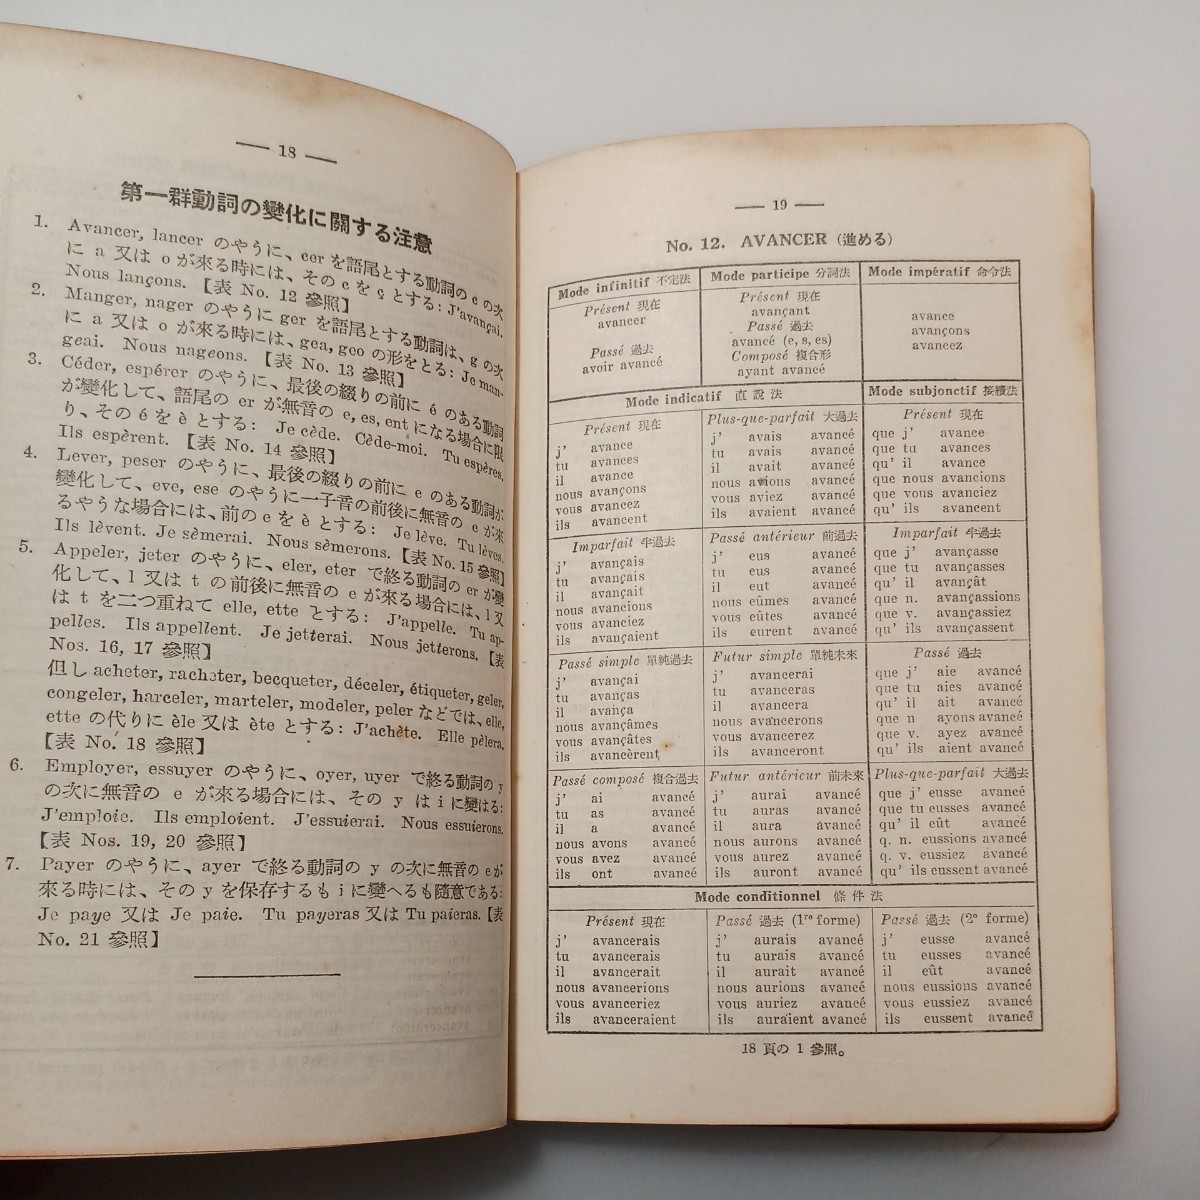 — 18 —
第一群動詞の變化に關する注意
1. Avancer, lancer のやうに、cer を語尾とする動詞の c の次
に a 又は o が來る時には、その c を ç とする: J'avançai.
Nous lançons.【表 No. 12 參照】
2. Manger, nager のやうに ger を語尾とする動詞は、g の次
に a 又は o が來る時には、gea, geo の形をとる: Je man-
geai. Nous nageons.【表 No. 13 參照】
3. Céder, espérer のやうに、最後の綴りの前に é のある動詞
が變化して、語尾の er が無音の e, es, ent になる場合に限
り、その é を è とする: Je cède. Cède-moi. Tu espères.
Ils espèrent.【表 No. 14 參照】
4. Lever, peser のやうに、最後の綴りの前に e のある動詞が
變化して、eve, ese のやうに一子音の前後に無音の e が來
るやうな場合には、前の e を è とする: Je lève. Tu lèves.
Ils lèvent. Je sèmerai. Nous sèmerons.【表 No. 15 參照】
5. Appeler, jeter のやうに、eler, eter で終る動詞の er が變
化して、l 又は t の前後に無音の e が來る場合には、l 又
は t を二つ重ねて elle, ette とする: J'appelle. Tu ap-
pelles. Ils appellent. Je jetterai. Nous jetterons.【表
Nos. 16, 17 參照】
但し acheter, racheter, becqueter, déceler, étiqueter, geler,
congeler, harceler, marteler, modeler, peler などでは、elle,
ette の代りに èle 又は ète とする: J'achète. Elle pèlera.
【表 No. 18 參照】
6. Employer, essuyer のやうに、oyer, uyer で終る動詞の y
の次に無音の e が來る場合には、その y は i に變はる:
J'emploie. Ils emploient. J'essuierai. Nous essuierons.
【表 Nos. 19, 20 參照】
7. Payer のやうに、ayer で終る動詞の y の次に無音の e が
來る時には、その y を保存するも i に變へるも隨意である:
Je paye 又は Je paie. Tu payeras 又は Tu paieras.【表
No. 21 參照】
— 19 —
No. 12. AVANCER (進める)
Mode infinitif 不定法
Présent 現在
avancer
Passé 過去
avoir avancé
Mode participe 分詞法
Présent 現在
avançant
Passé 過去
avancé (e, s, es)
Composé 複合形
ayant avancé
Mode impératif 命令法
avance
avançons
avancez
Mode indicatif 直說法
Présent 現在
j' avance
tu avances
il avance
nous avançons
vous avancez
ils avancent
Plus-que-parfait 大過去
j' avais avancé
tu avais avancé
il avait avancé
nous avions avancé
vous aviez avancé
ils avaient avancé
Mode subjonctif 接續法
Présent 現在
que j' avance
que tu avances
qu' il avance
que nous avancions
que vous avanciez
qu' ils avancent
Imparfait 半過去
j' avançais
tu avançais
il avançait
nous avancions
vous avanciez
ils avançaient
Passé antérieur 前過去
j' eus avancé
tu eus avancé
il eut avancé
nous eûmes avancé
vous eûtes avancé
ils eurent avancé
Imparfait 半過去
que j' avançasse
que tu avançasses
qu' il avançât
que n. avançassions
que v. avançassiez
qu' ils avançassent
Passé simple 單純過去
j' avançai
tu avanças
il avança
nous avançâmes
vous avançâtes
ils avancèrent
Futur simple 單純未來
j' avancerai
tu avanceras
il avancera
nous avancerons
vous avancerez
ils avanceront
Passé 過去
que j' aie avancé
que tu aies avancé
qu' il ait avancé
que n ayons avancé
que v. ayez avancé
qu' ils aient avancé
Passé composé 複合過去
j' ai avancé
tu as avancé
il a avancé
nous avons avancé
vous avez avancé
ils ont avancé
Futur antérieur 前未來
j' aurai avancé
tu auras avancé
il aura avancé
nous aurons avancé
vous aurez avancé
ils auront avancé
Plus-que-parfait 大過去
que j' eusse avancé
que tu eusses avancé
qu' il eût avancé
q. n. eussions avancé
q. v. eussiez avancé
qu' ils eussent avancé
Mode conditionnel 條件法
Présent 現在
j' avancerais
tu avancerais
il avancerait
nous avancerions
vous avanceriez
ils avanceraient
Passé 過去 (1re forme)
j' aurais avancé
tu aurais avancé
il aurait avancé
nous aurions avancé
vous auriez avancé
ils auraient avancé
Passé 過去 (2e forme)
j' eusse avancé
tu eusses avancé
il eût avancé
nous eussions avancé
vous eussiez avancé
ils eussent avancé
18 頁の 1 參照。